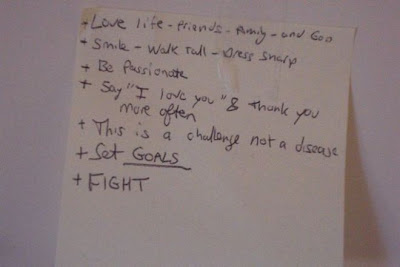 + Love life - friends - family - and God
+ Smile - Walk Tall - Dress sharp
+ Be Passionate
+ Say "I love you" & thank you
more often
+ This is a challenge not a disease
+ Set GOALS
+ FIGHT